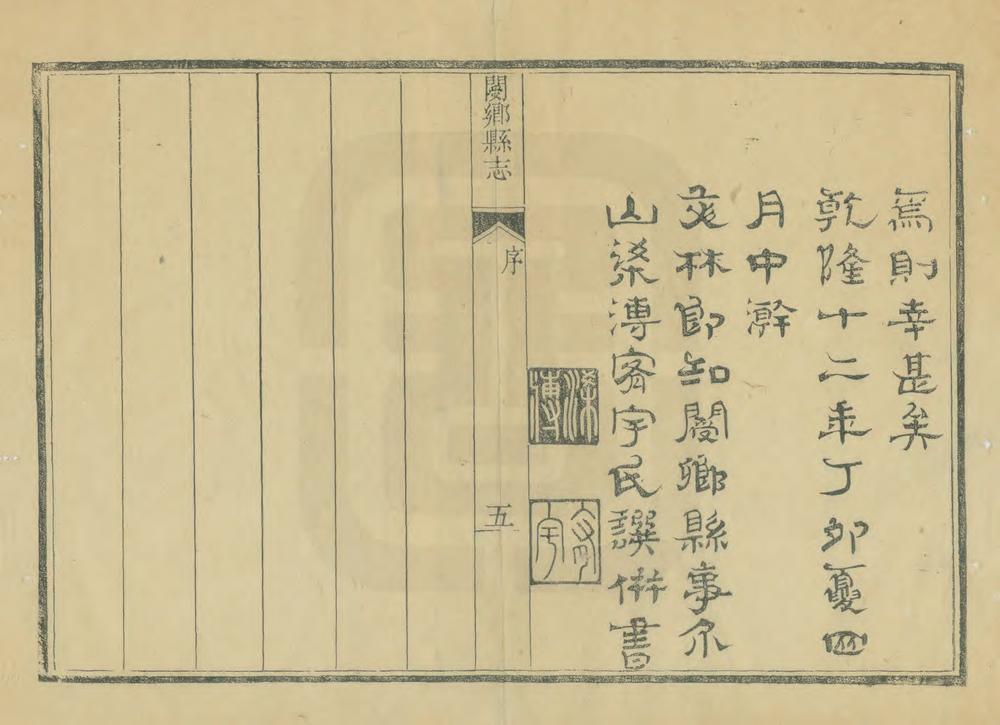 焉則幸甚矣
乾隆十二年丁卯夏四
月中澣
文林郎知閿鄉縣事介
山梁溥客宇氏譔併書
梁溥
閿鄉縣志
序
五